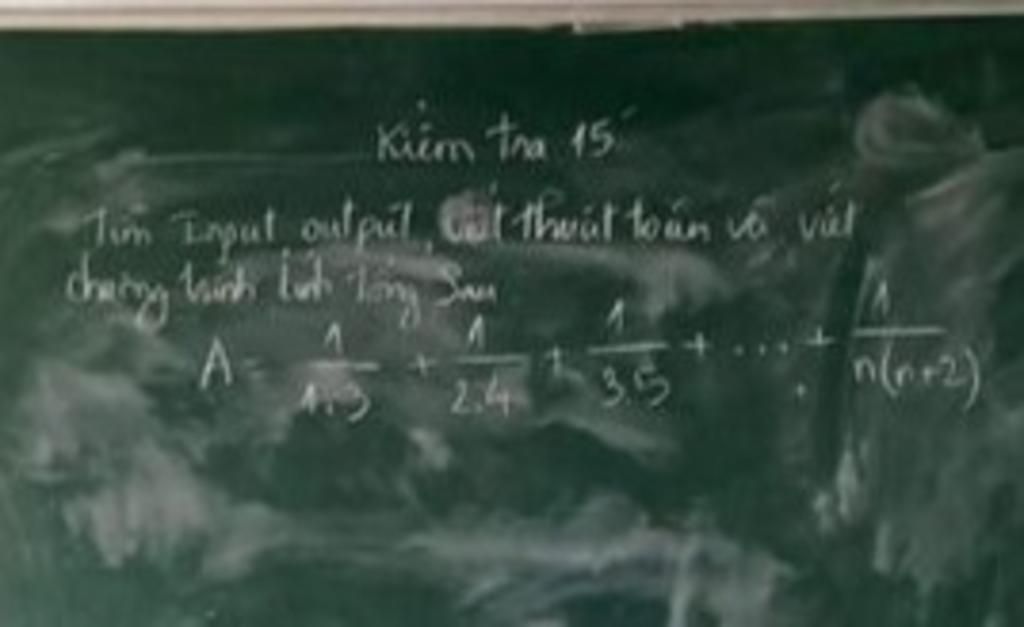 Kiểm tra 15'
Tìm Input output, viết thuật toán và viết
chương trình tính tổng sau
A = 1/1.3 + 1/2.4 + 1/3.5 + ... + 1/n(n+2)